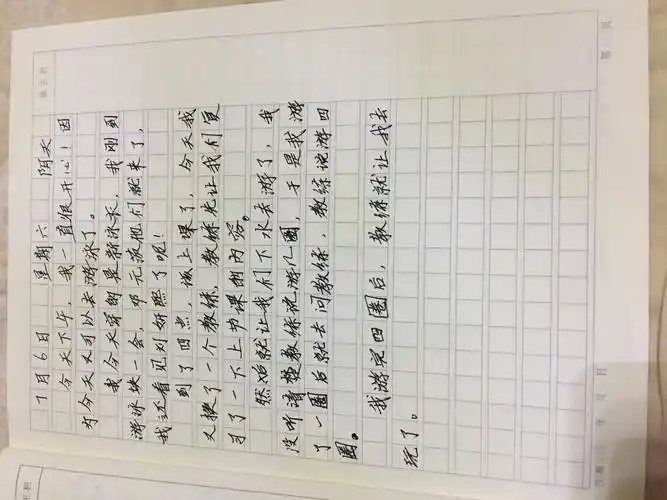 7月6日 星期六 阴天
今天下午,我一直很开心!因
为今天又可以去游泳了。
我今天穿的是新泳衣,我刚到
游泳块一会,邓元波他们就来了,
我还看见刘妍熙了呢!
到了四点,该上课了,今天我
又换了一个教练,教练先让我们复
习了一下上节课的内容。
然始就让我们下水去游了,我
没听清楚教练说游几圈,于是我游
了一圈后就去问教练,教练说游四
圈。
我游完四圈后,教练就让我去
玩了。